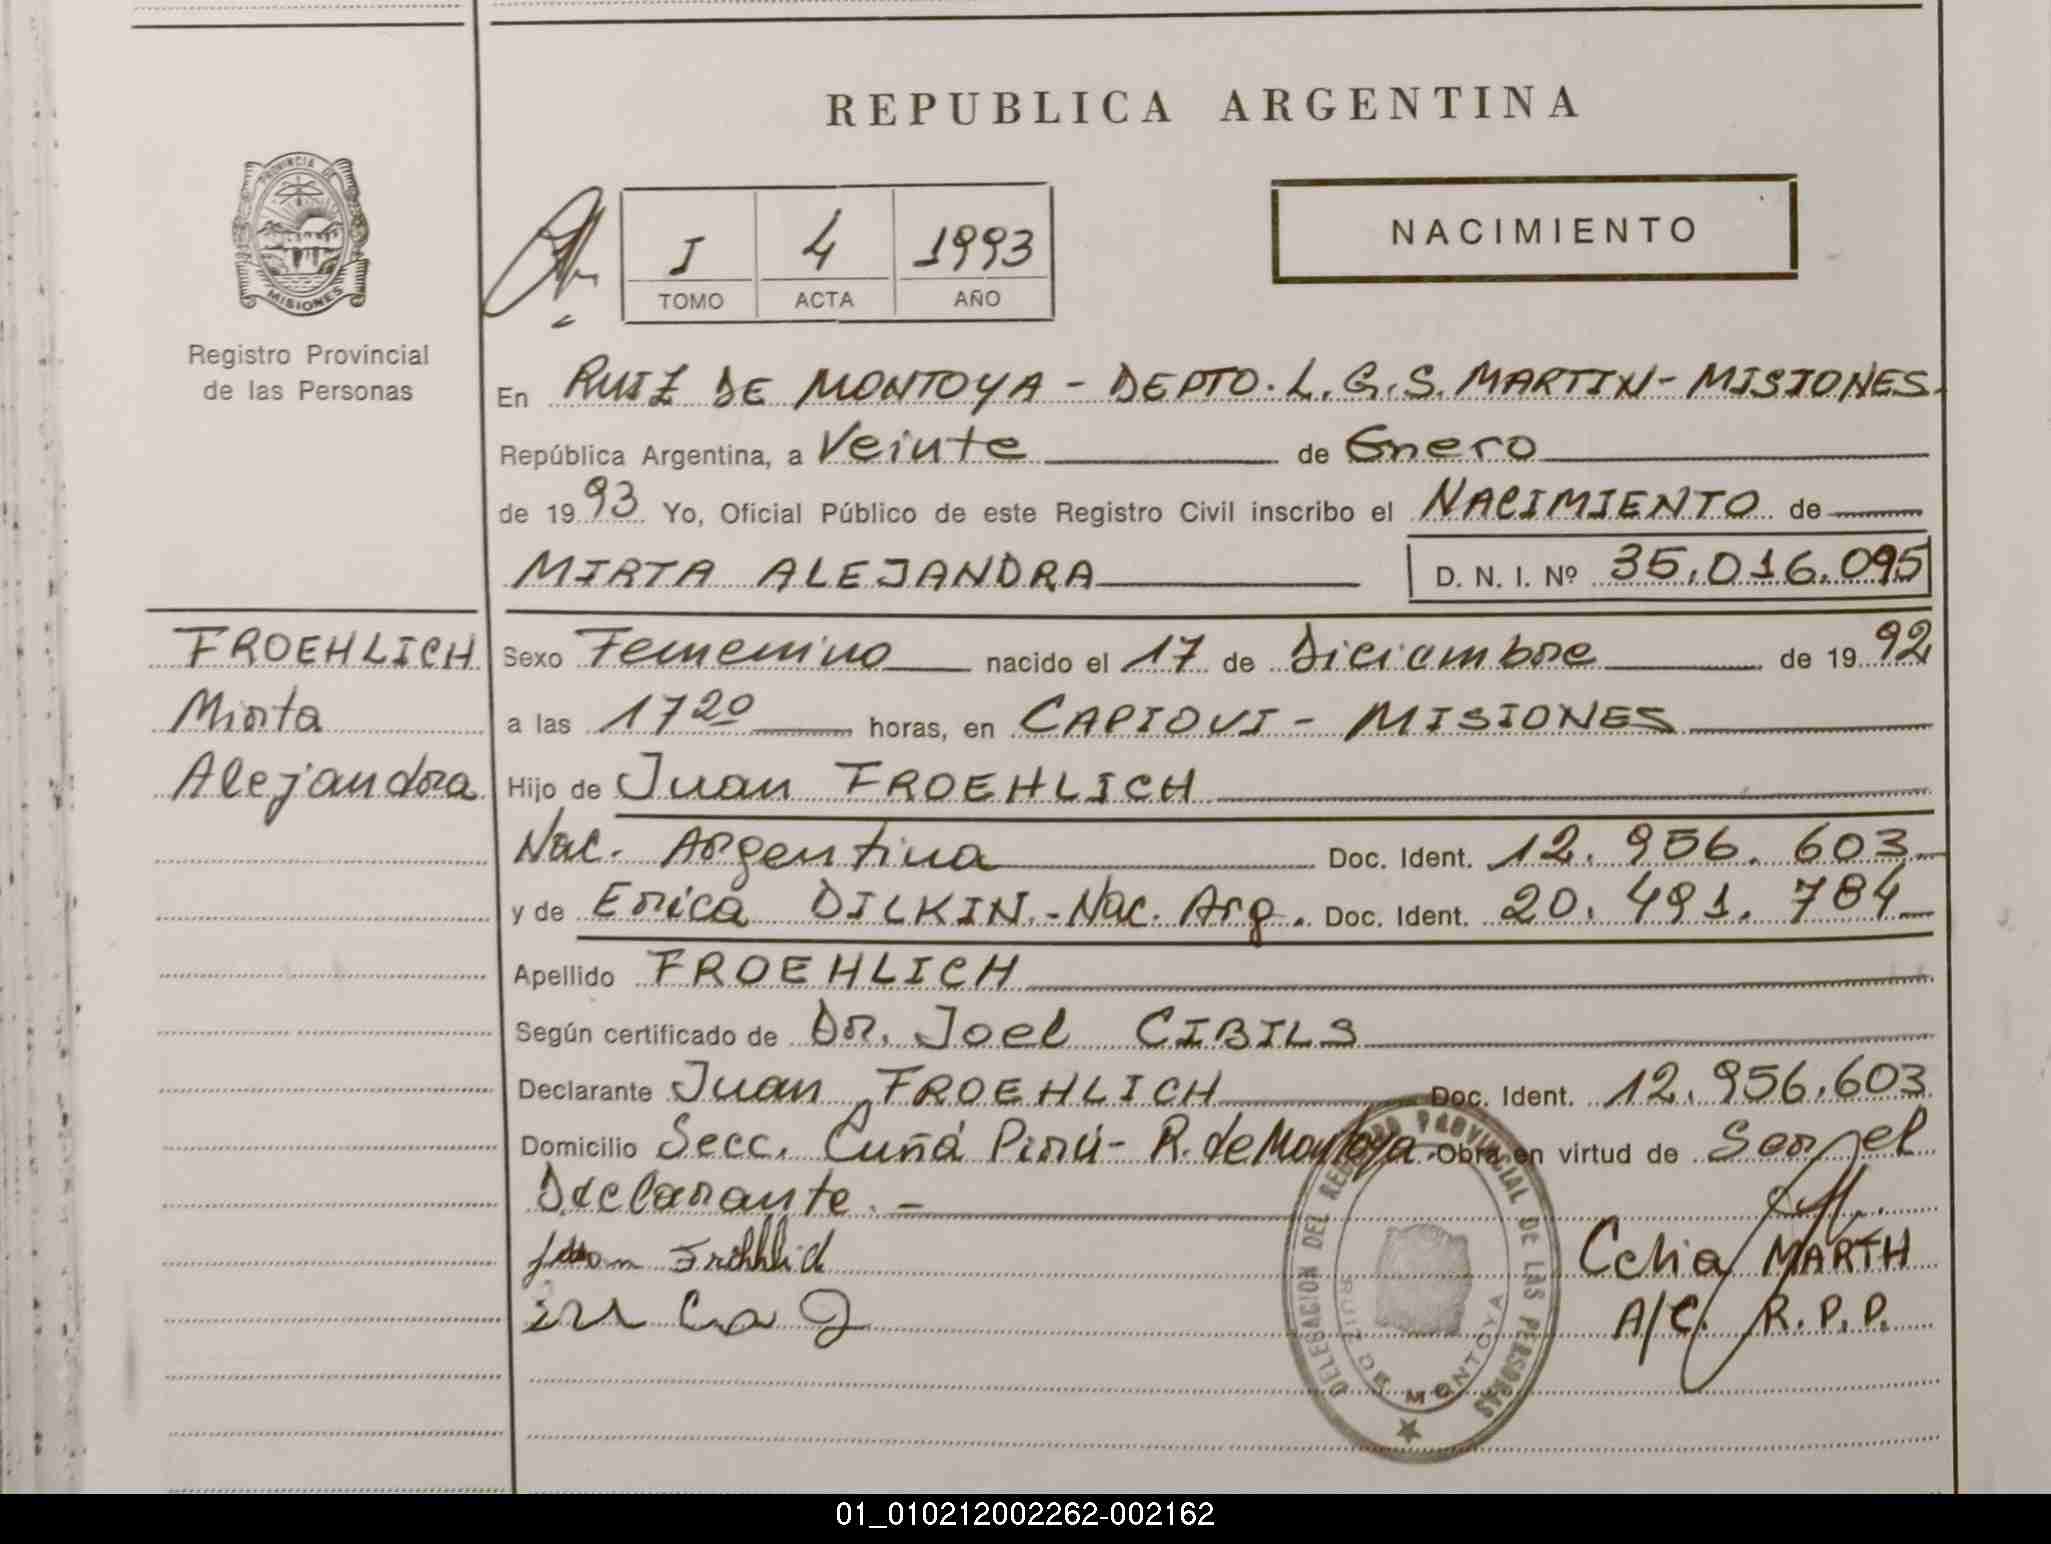 REPUBLICA ARGENTINA
PROVINCIA DE
MISIONES
Registro Provincial
de las Personas
I 4 1993
TOMO ACTA AÑO
NACIMIENTO
En RUIZ DE MONTOYA - DEPTO. L. G. S. MARTIN - MISIONES.
República Argentina, a Veinte de Enero
de 1993 Yo, Oficial Público de este Registro Civil inscribo el NACIMIENTO de
MIRTA ALEJANDRA D. N. I. Nº 35.016.095
FROEHLICH
Mirta
Alejandra
Sexo Femenino nacido el 17 de Diciembre de 1992
a las 17 20 horas, en CAPIOVI - MISIONES
Hijo de Juan FROEHLICH
Nac. Argentina Doc. Ident. 12. 956. 603
y de Erica DILKIN.- Nac. Arg. Doc. Ident. 20. 491. 784
Apellido FROEHLICH
Según certificado de Dr. Joel CIBILS
Declarante Juan FROEHLICH Doc. Ident. 12.956.603
Domicilio Secc. Cuñá Pirú - R. de Montoya. Obra en virtud de Ser el
Declarante. -
Celia MARTH
A/C. R.P.P.
DELEGACION DEL REGISTRO PROVINCIAL DE LAS PERSONAS
RUIZ DE MONTOYA
01_010212002262-002162